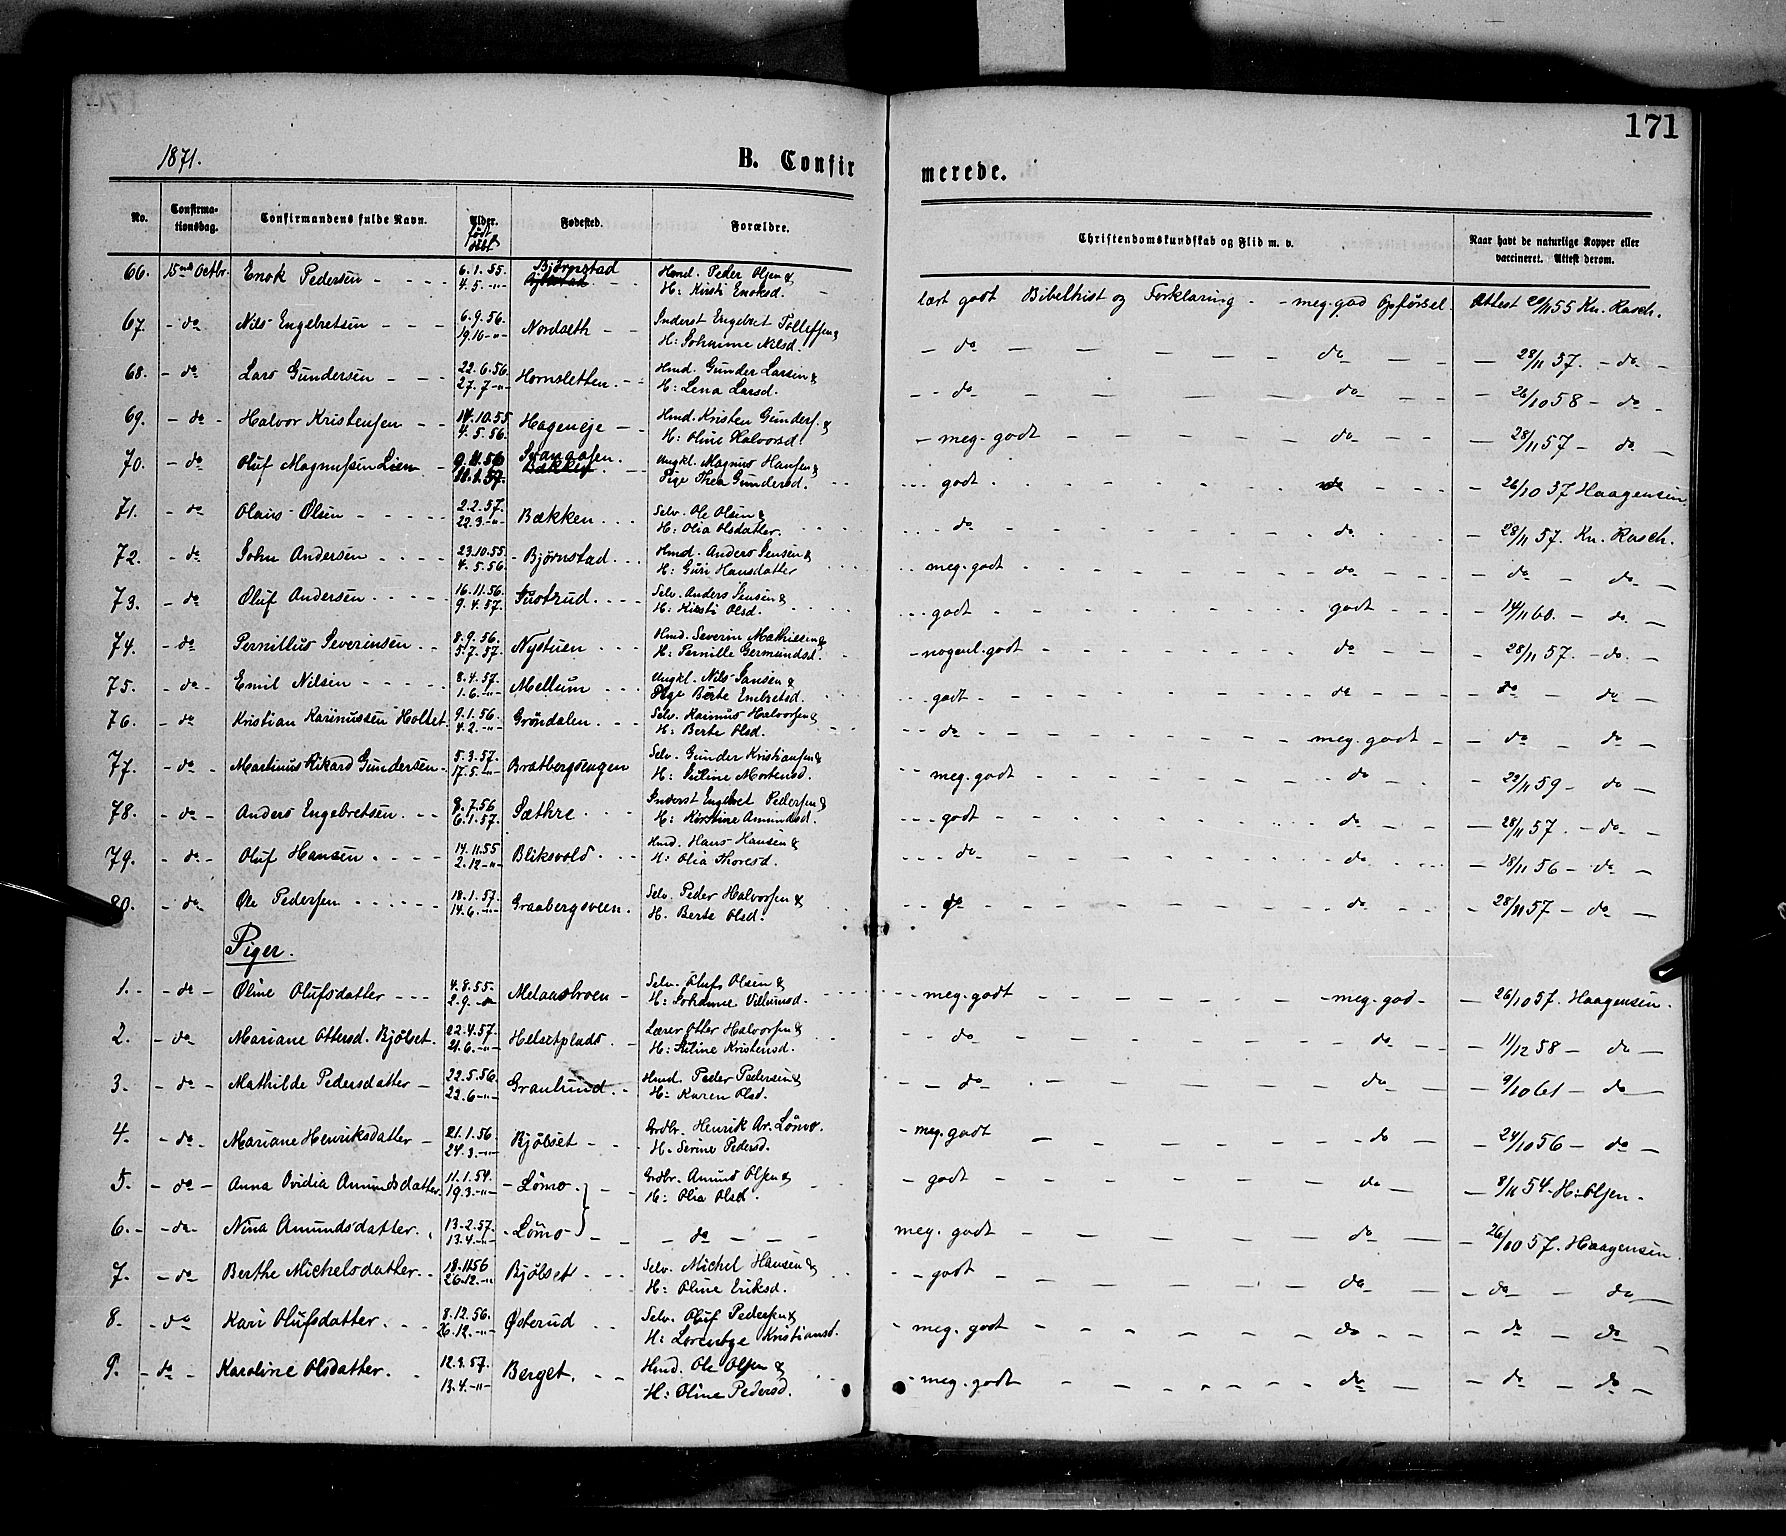 171
1871.
B. Confirmerede.
No. Confirmationsdag. Confirmandens fulde Navn. Alder. født døbt Fødested. Forældre. Christendomskundskab og Flid m. v. Naar havt de naturlige Kopper eller vaccineret. Attest derom.
66. 15nd Octbr. Enok Pedersen 6.1.55. 4.5.-"- Björnstad Hmd. Peder Olsen & H: Kirsti Enoksd. lært godt Bibelhist og Forklaring - meg. god Opførsel. Attest 29/11 55 Kn. Rasch.
67. do Nils Engebretsen 6.9.56. 19.10-"- Nordseth Inderst Engebret Tollefsen & H: Johanne Nilsd. do do 28/11 57. do
68. do Lars Gundersen 22.6.56. 27.7-"- Hornsletten. Hmd. Gunder Larsen & H: Lena Larsd. do do 26/10 58 do
69. do Halvor Kristensen 14.10.55 4.5.56. Hageneje Hmd. Kristen Gunders. & H: Oline Halvorsd. meg. godt do 28/11 57 do
70. do Oluf Magnussen Lien 9.11.56 Bakken Ungkl. Magnus Hansen & Pige Thea Gundersd. godt do 26/10 57 Haagensen
71. do Olaus Olsen 2.2.57. 22.3.-"- Bækken Selv. Ole Olsen & H: Olia Olsdatter. do do 28/11 57. Kn. Rasch.
72. do John Andersen 23.10.55. 4.5.56. Bjørnstad Hmd. Anders Jensen & H: Guri Hansdatter meg. godt do do do
73. do Oluf Andersen 16.11.56. 9.4.57. Selv. Anders Jensen & H: Kirsti Olsd. godt godt 14/11 60. do
74. do Pernillus Severinsen 8.9.56. 5.7.57. Nystuen Hmd. Severin Mathiesen & H: Pernille Germundsd. nogenl. godt do 28/11 57. do
75. do Emil Nilsen 8.4.57. 1.6.-"- Mellum Ungkl. Nils Jansen & Pige Berte Embretsd. godt do do do
76. do Kristian Karinussen Holtet. 9.1.56. 4.2.-"- Gröndalen. Selv. Karinus Halvorsen & H: Berte Olsd. do meg. godt do do
77. do Martinus Rikard Gundersen. 5.3.57. 17.5.-"- Bratbergsengen Selv. Gunder Kristiansen & H: Juline Mortensd. meg. godt do 22/11 59 do
78. do Anders Engebretsen. 8.7.56 6.1.57. Sæthre Inderst Engebret Pedersen & H: Kerstine Amundsd. godt do 28/11 57. do
79. do Oluf Hansen. 14.11.55 2.12-"- Bliksvold. Hmd. Hans Hansen & H: Olia Thoresd. do do 18/11 56 do
80. do Ole Pedersen 18.1.57. 14.6.-"- Graabergsveen. Selv. Peder Halvorsen & H. Berte Olsd. do do 28/11 57 do
Piger.
1. do Oline Olufsdatter 4.8.55. 2.9.-"- Melaasbroen Selv. Oluf Olsen & H: Johanne Villumsd. meg. godt meg. god 26/10 57. Haagensen.
2. do Mariane Ottersd. Bjölset. 22.4.57. 21.6.-"- Helsetplads. Lærer Otter Halvorsen & H: Juline Kristensd. do do 11/12 58 do
3. do Mathilde Pedersdatter 22.5.56. 22.6-"- Graulund. Hmd. Peder Pedersen & H: Karen Olsd. do do 9/10 61 do
4. do Mariane Henriksdatter 21.1.56. 24.3.-"- Bjölset Grdbr. Henrik Ar. Lömo. H. Serine Pedersd. meg. godt do 24/10 56 do
5. do Anna Ovidia Amundsdatter. 11.1.54. 19.3.-"- Lömo Grdbr. Amund Olsen & H: Olia Olsd. godt do 8/11 54 H: Olsen.
6. do Nina Amundsdatter. 13.2.57. 13.4.-"- Lömo do meg. godt do 26/10 57. Haagensen.
7. do Berthe Michelsdatter. 18.11.56 26.12.-"- Bjölset Selv. Michel Hansen & H: Oline Eriksd. godt do do do
8. do Kari Olufsdatter. 8.12.56. 26.12.-"- Østerud Selv. Oluf Pedersen & H: Lorentze Kristiansd. meg. godt do do do
9. do Karoline Olsdatter. 12.3.57. 13.4.-"- Berget. Hmd. Ole Olsen & H: Oline Pedersd. meg. godt do do do